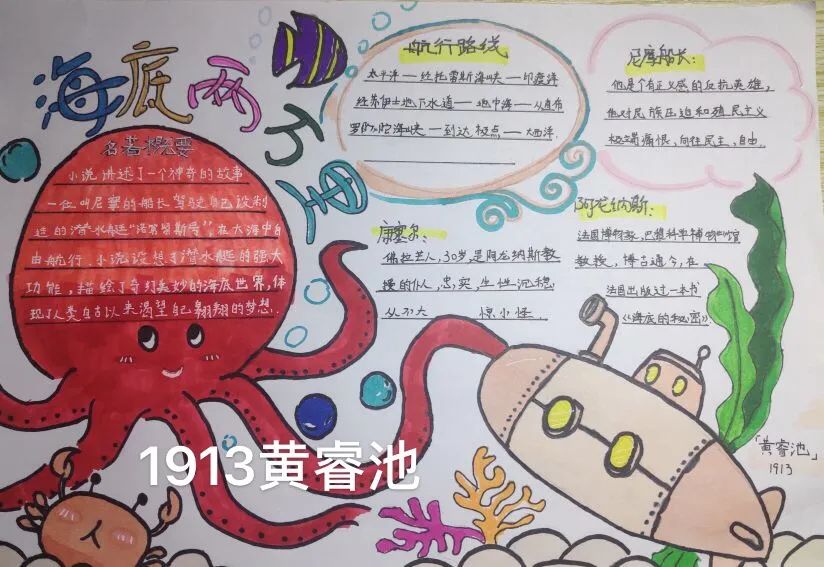 海底两万里
名著概要
小说讲述了一个神奇的故事
一位叫尼摩的船长驾驶自己设制
造的潜水艇“诺第留斯号”在大海中自
由航行.小说设想了潜水艇的强大
功能，描绘了奇幻美妙的海底世界，体
现了人类自古以来渴望自己翱翔的梦想.
航行路线
太平洋——经托雷斯海峡——印度洋
经苏伊士地下水道——地中海——从直布
罗陀海峡——到达极点——大西洋.
尼摩船长：
他是个有正义感的反抗英雄，
他对民族压迫和殖民主义
极端痛恨、向往民主、自由.
康塞尔：
佛拉芒人，30岁是阿龙纳斯教
授的仆人，忠实，生性沉稳
从不大惊小怪.
阿龙纳斯：
法国博物家，巴黎科学博物馆
教授，博古通今，在
法国出版过一本书
《海底的秘密》.
1913黄睿池
「黄睿池」
1913